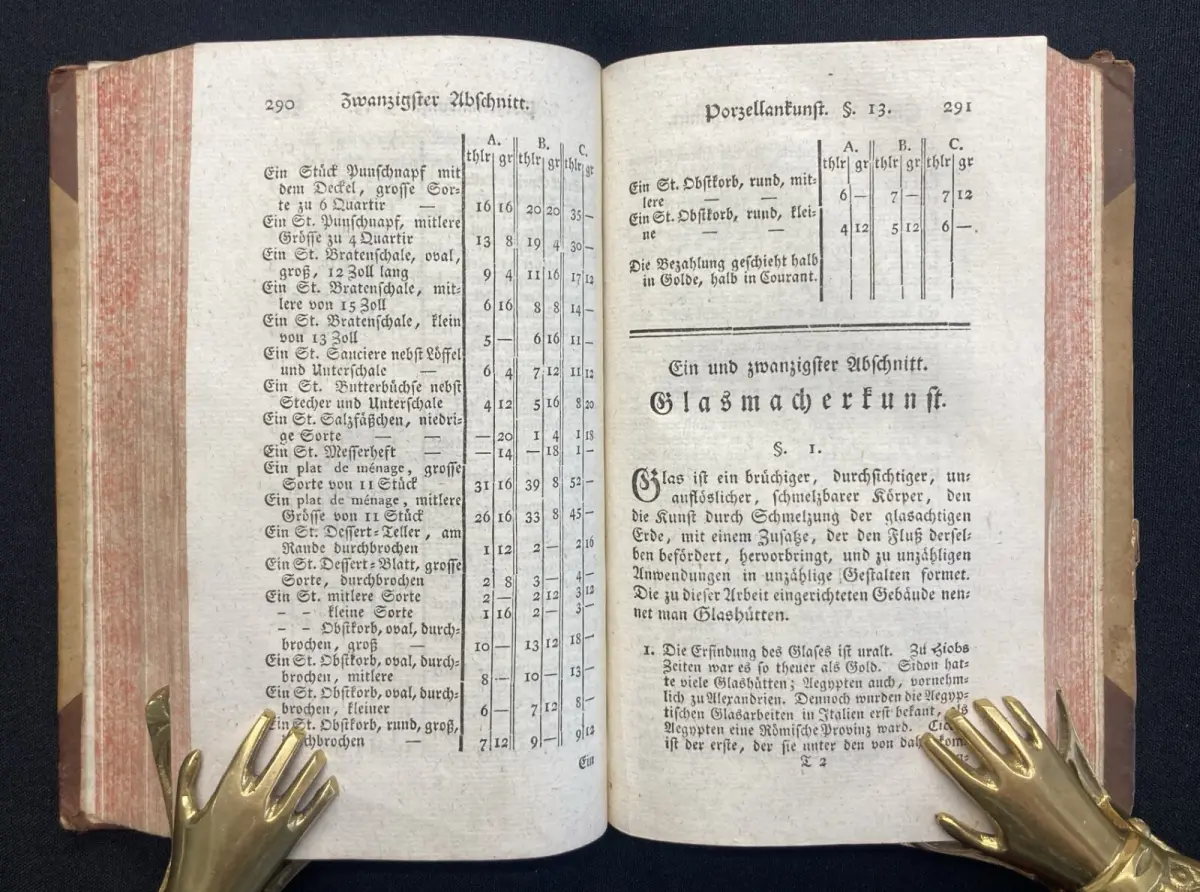 290 Zwanzigster Abschnitt.
A. B. C.
thlr gr thlr gr thlr gr
Ein Stück Punschnapf mit
dem Deckel, grosse Sor-
te zu 6 Quartir — 16 16 20 20 35 —
Ein St. Punschnapf, mitlere
Grösse zu 4 Quartir 13 8 19 4 30 —
Ein St. Bratenschale, oval,
groß, 12 Zoll lang 9 4 11 16 17 12
Ein St. Bratenschale, mit-
lere von 15 Zoll 6 16 8 8 14 —
Ein St. Bratenschale, klein
von 13 Zoll 5 — 6 16 11 —
Ein St. Sauciere nebst Löffel
und Unterschale — 6 4 7 12 11 12
Ein St. Butterbüchse nebst
Stecher und Unterschale 4 12 5 16 8 20
Ein St. Salzfäßchen, niedri-
ge Sorte — — — 20 1 4 1 18
Ein St. Messerheft — — 14 — 18 1 —
Ein plat de ménage, grosse
Sorte von 11 Stück 31 16 39 8 52 —
Ein plat de ménage, mitlere
Grösse von 11 Stück 26 16 33 8 45 —
Ein St. Dessert-Teller, am
Rande durchbrochen 1 12 2 — 2 16
Ein St. Dessert-Blatt, grosse
Sorte, durchbrochen 2 8 3 — 4 —
Ein St. mitlere Sorte 2 — 2 12 3 12
– – kleine Sorte 1 16 2 — 3 —
– – Obstkorb, oval, durch-
brochen, groß — 10 — 13 12 18 —
Ein St. Obstkorb, oval, durch-
brochen, mitlere 8 — 10 — 13 —
Ein St. Obstkorb, oval, durch-
brochen, kleiner 6 — 7 12 8 —
Ein St. Obstkorb, rund, groß,
chbrochen — 7 12 9 — 9 12
Ein
Porzellankunst. §. 13. 291
A. B. C.
thlr gr thlr gr thlr gr
Ein St. Obstkorb, rund, mit-
lere — — 6 — 7 — 7 12
Ein St. Obstkorb, rund, klei-
ne — — 4 12 5 12 6 —.
Die Bezahlung geschieht halb
in Golde, halb in Courant.
Ein und zwanzigster Abschnitt.
Glasmacherkunst.
§. 1.
Glas ist ein brüchiger, durchsichtiger, un-
auflöslicher, schmelzbarer Körper, den
die Kunst durch Schmelzung der glasachtigen
Erde, mit einem Zusatze, der den Fluß dersel-
ben befördert, hervorbringt, und zu unzähligen
Anwendungen in unzählige Gestalten formet.
Die zu dieser Arbeit eingerichteten Gebäude nen-
net man Glashütten.
1. Die Erfindung des Glases ist uralt. Zu Hiobs
Zeiten war es so theuer als Gold. Sidon hat-
te viele Glashütten; Aegypten auch, vornehm-
lich zu Alexandrien. Dennoch wurden die Aegyp-
tischen Glasarbeiten in Italien erst bekant, als
Aegypten eine Römische Provinz ward.
ist der erste, der sie unter den von
T 2